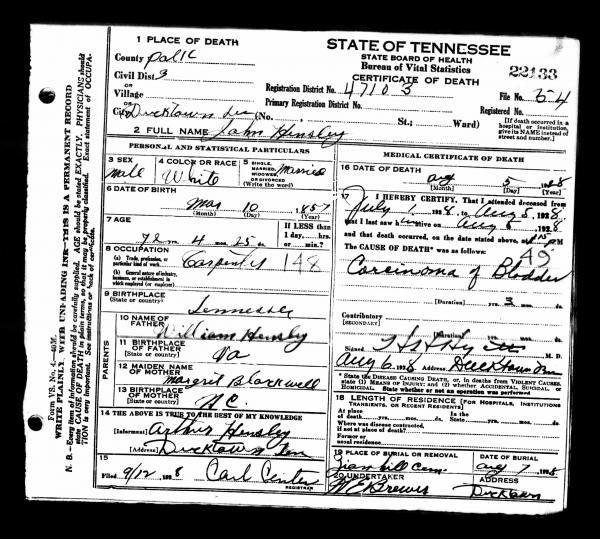 Form V.S. No. 4.—40M.
WRITE PLAINLY, WITH UNFADING INK—THIS IS A PERMANENT RECORD
N. B.—Every item of information should be carefully supplied. AGE should be stated EXACTLY. PHYSICIANS should
state CAUSE OF DEATH in plain terms, so that it may be properly classified. Exact statement of OCCUPA-
TION is very important. See instructions on back of certificate.
1 PLACE OF DEATH
County Polk
Civil Dist 3
Village
City Ducktown Ten (No. St.; Ward)
2 FULL NAME John Hensley
STATE OF TENNESSEE
STATE BOARD OF HEALTH
Bureau of Vital Statistics
CERTIFICATE OF DEATH
22133
Registration District No. 47103 File No. 54
Primary Registration District No. Registered No.
(If death occurred in a
hospital or institution,
give its NAME instead of
street and number.)
PERSONAL AND STATISTICAL PARTICULARS
3 SEX male
4 COLOR OR RACE White
5 SINGLE, MARRIED, WIDOWED, OR DIVORCED (Write the word) Married
6 DATE OF BIRTH
Mar 10 1857
(Month) (Day) (Year)
7 AGE
If LESS than
1 day,....hrs.
or....min.?
4 mos. 25
8 OCCUPATION
(a) Trade, profession, or
particular kind of work Carpenter 148
(b) General nature of industry,
business, or establishment in
which employed (or employer)
9 BIRTHPLACE
(State or country) Tennessee
PARENTS
10 NAME OF
FATHER William Hensley
11 BIRTHPLACE
OF FATHER
(State or country) Va
12 MAIDEN NAME
OF MOTHER Margrit Blackwell
13 BIRTHPLACE
OF MOTHER
(State or country) N C
14 THE ABOVE IS TRUE TO THE BEST OF MY KNOWLEDGE
(Informant) Arthur Hensley
(Address) Ducktown Ten
15
Filed 9/12 1928 Carl Center
REGISTRAR
MEDICAL CERTIFICATE OF DEATH
16 DATE OF DEATH
Aug 5 1928
(Month) (Day) (Year)
17 I HEREBY CERTIFY, That I attended deceased from
July 1, 1928, to Aug 5, 1928,
that I last saw h alive on Aug 5 1928,
and that death occurred, on the date stated above, at PM
The CAUSE OF DEATH* was as follows: 49
Carcinoma of Bladder
(Duration) yrs. 3 mos. ds.
Contributory
(SECONDARY)
(Duration) yrs. mos. ds.
Signed M. D.
Aug 6 1928 (Address) Ducktown
* State the DISEASE CAUSING DEATH, or, in deaths from VIOLENT CAUSES,
state (1) MEANS OF INJURY; and (2) whether ACCIDENTAL, SUICIDAL, or
HOMICIDAL. State whether or not an operation was performed
18 LENGTH OF RESIDENCE (FOR HOSPITALS, INSTITUTIONS
TRANSIENTS, OR RECENT RESIDENTS)
At place
of death....yrs....mos....ds. State....yrs....mos....ds.
Where was disease contracted,
if not at place of death?
Former or
usual residence
19 PLACE OF BURIAL OR REMOVAL DATE OF BURIAL
Zion hill Cem Aug 7 1928
20 UNDERTAKER ADDRESS
Ducktown